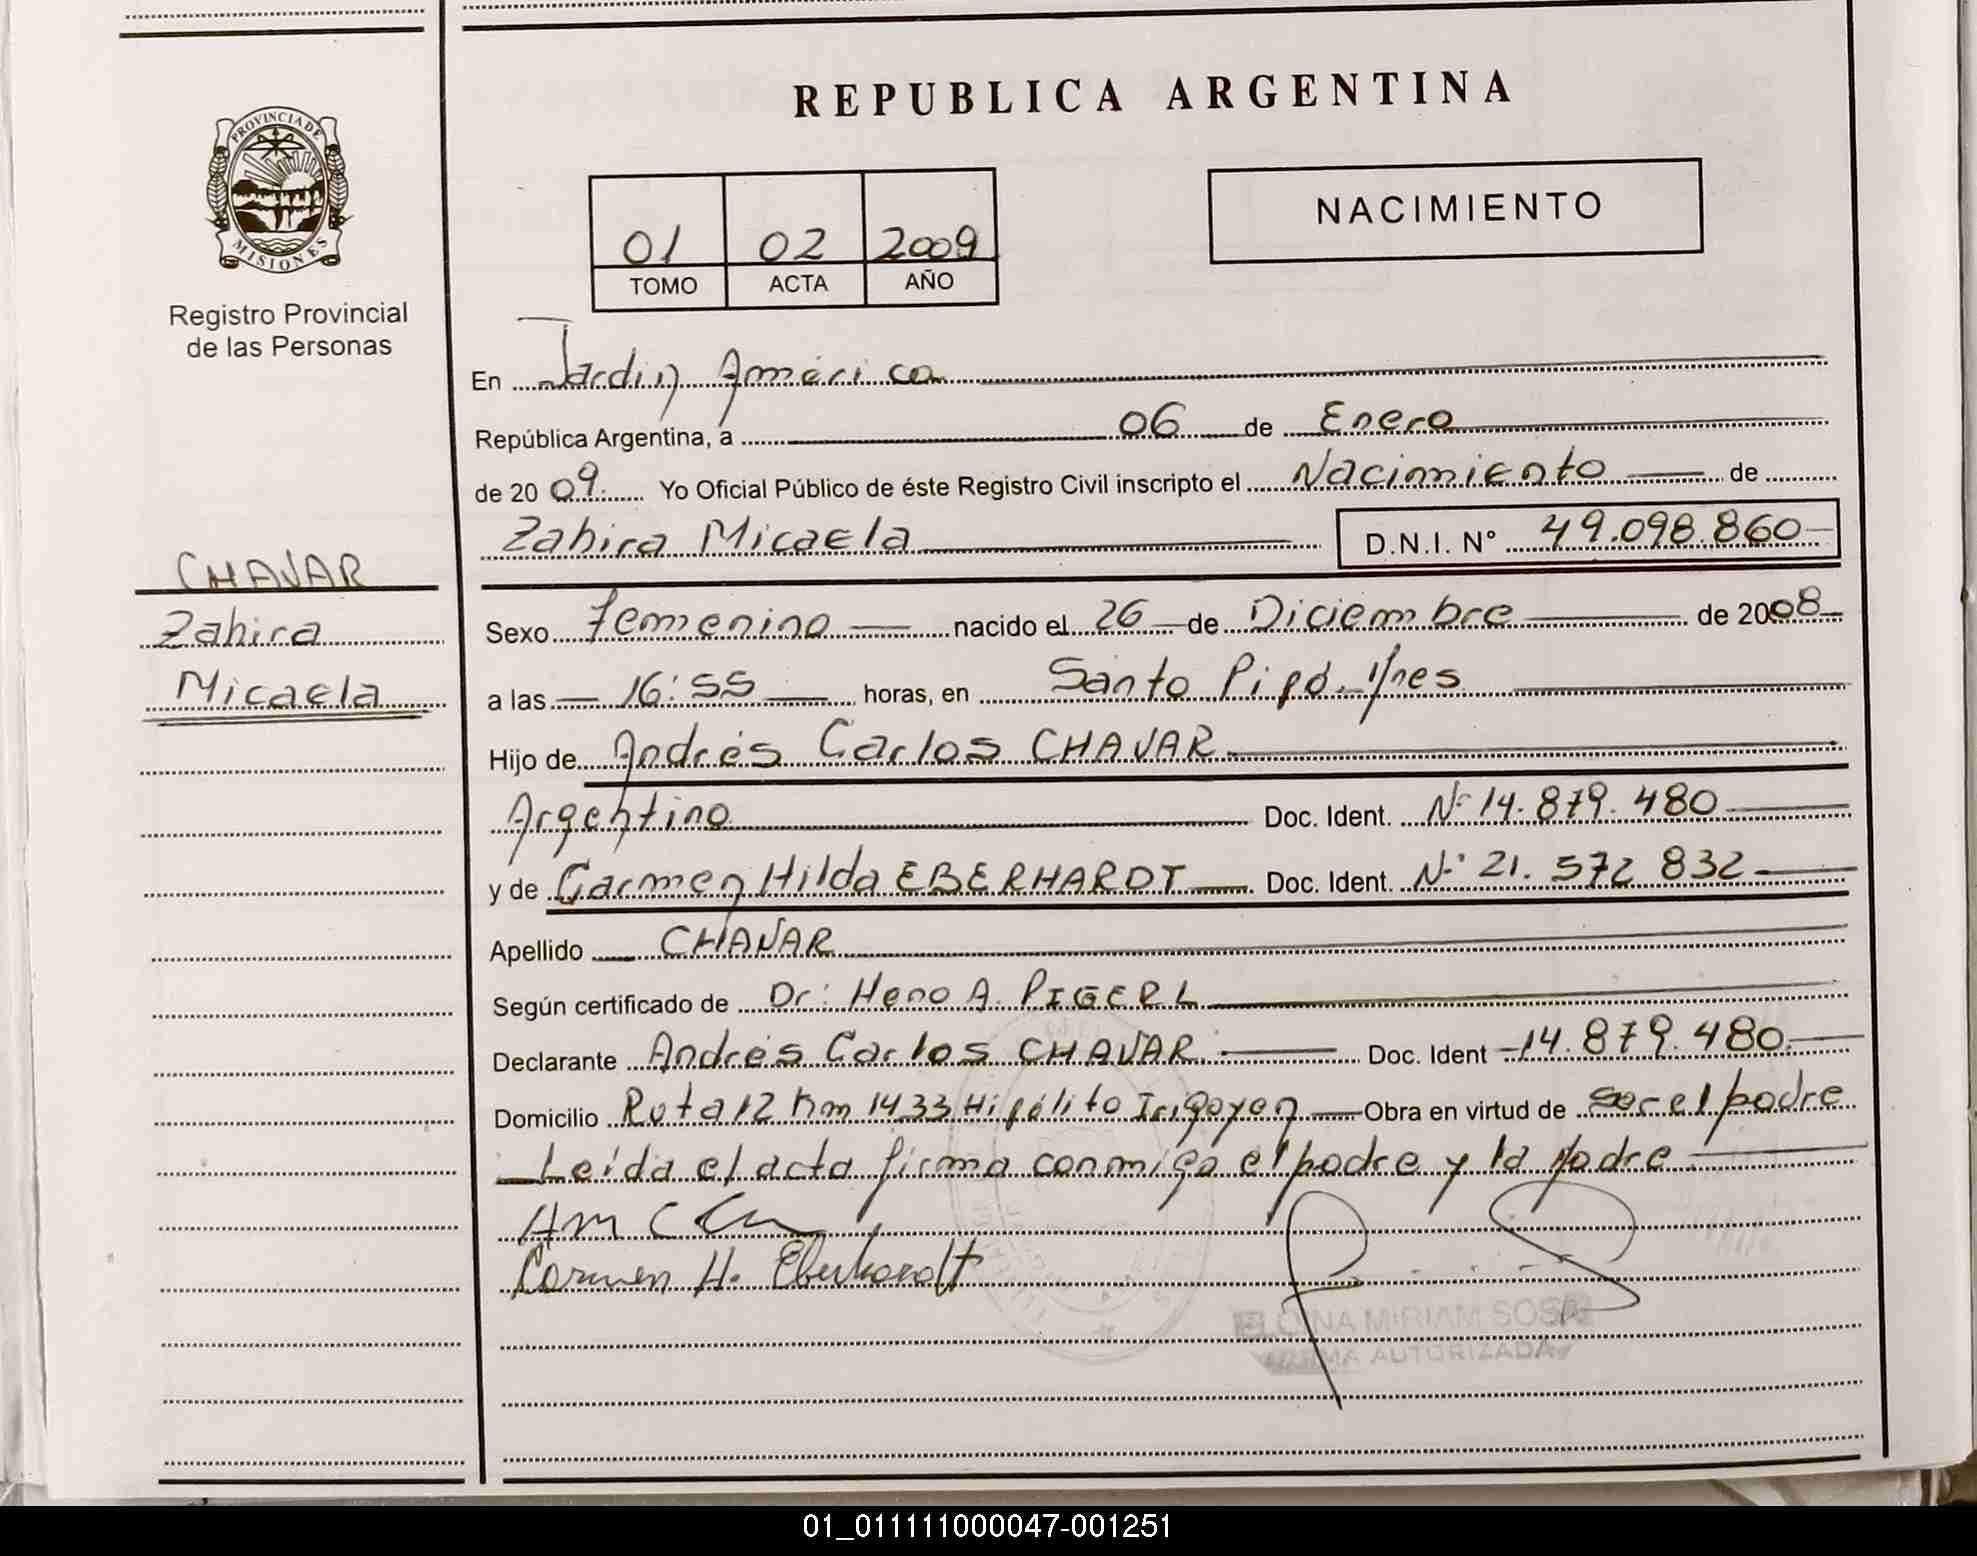 REPUBLICA ARGENTINA
PROVINCIA DE
MISIONES
Registro Provincial
de las Personas
01 02 2009
TOMO ACTA AÑO
NACIMIENTO
CHAVAR
Zahira
Micaela
En Jardin América
República Argentina, a 06 de Enero
de 20 09. Yo Oficial Público de éste Registro Civil inscripto el Nacimiento de
Zahira Micaela D.N.I. N° 49.098.860
Sexo Femenino nacido el 26 de Diciembre de 2008
a las 16:55 horas, en Santo Pipó. Mnes
Hijo de Andrés Carlos CHAVAR
Argentino Doc. Ident. N° 14.879.480
y de Carmen Hilda EBERHARDT Doc. Ident. N° 21.572 832
Apellido CHAVAR
Según certificado de Dr: Heno A. PIGERL
Declarante Andrés Carlos CHAVAR Doc. Ident 14.879.480
Domicilio Ruta 12 Km 1433 Hipólito Irigoyen Obra en virtud de ser el padre
Leída el acta firma conmigo el padre y la Madre
Carmen H. Eberhardt
ELOINA MIRIAM SOSA
FIRMA AUTORIZADA
01_011111000047-001251